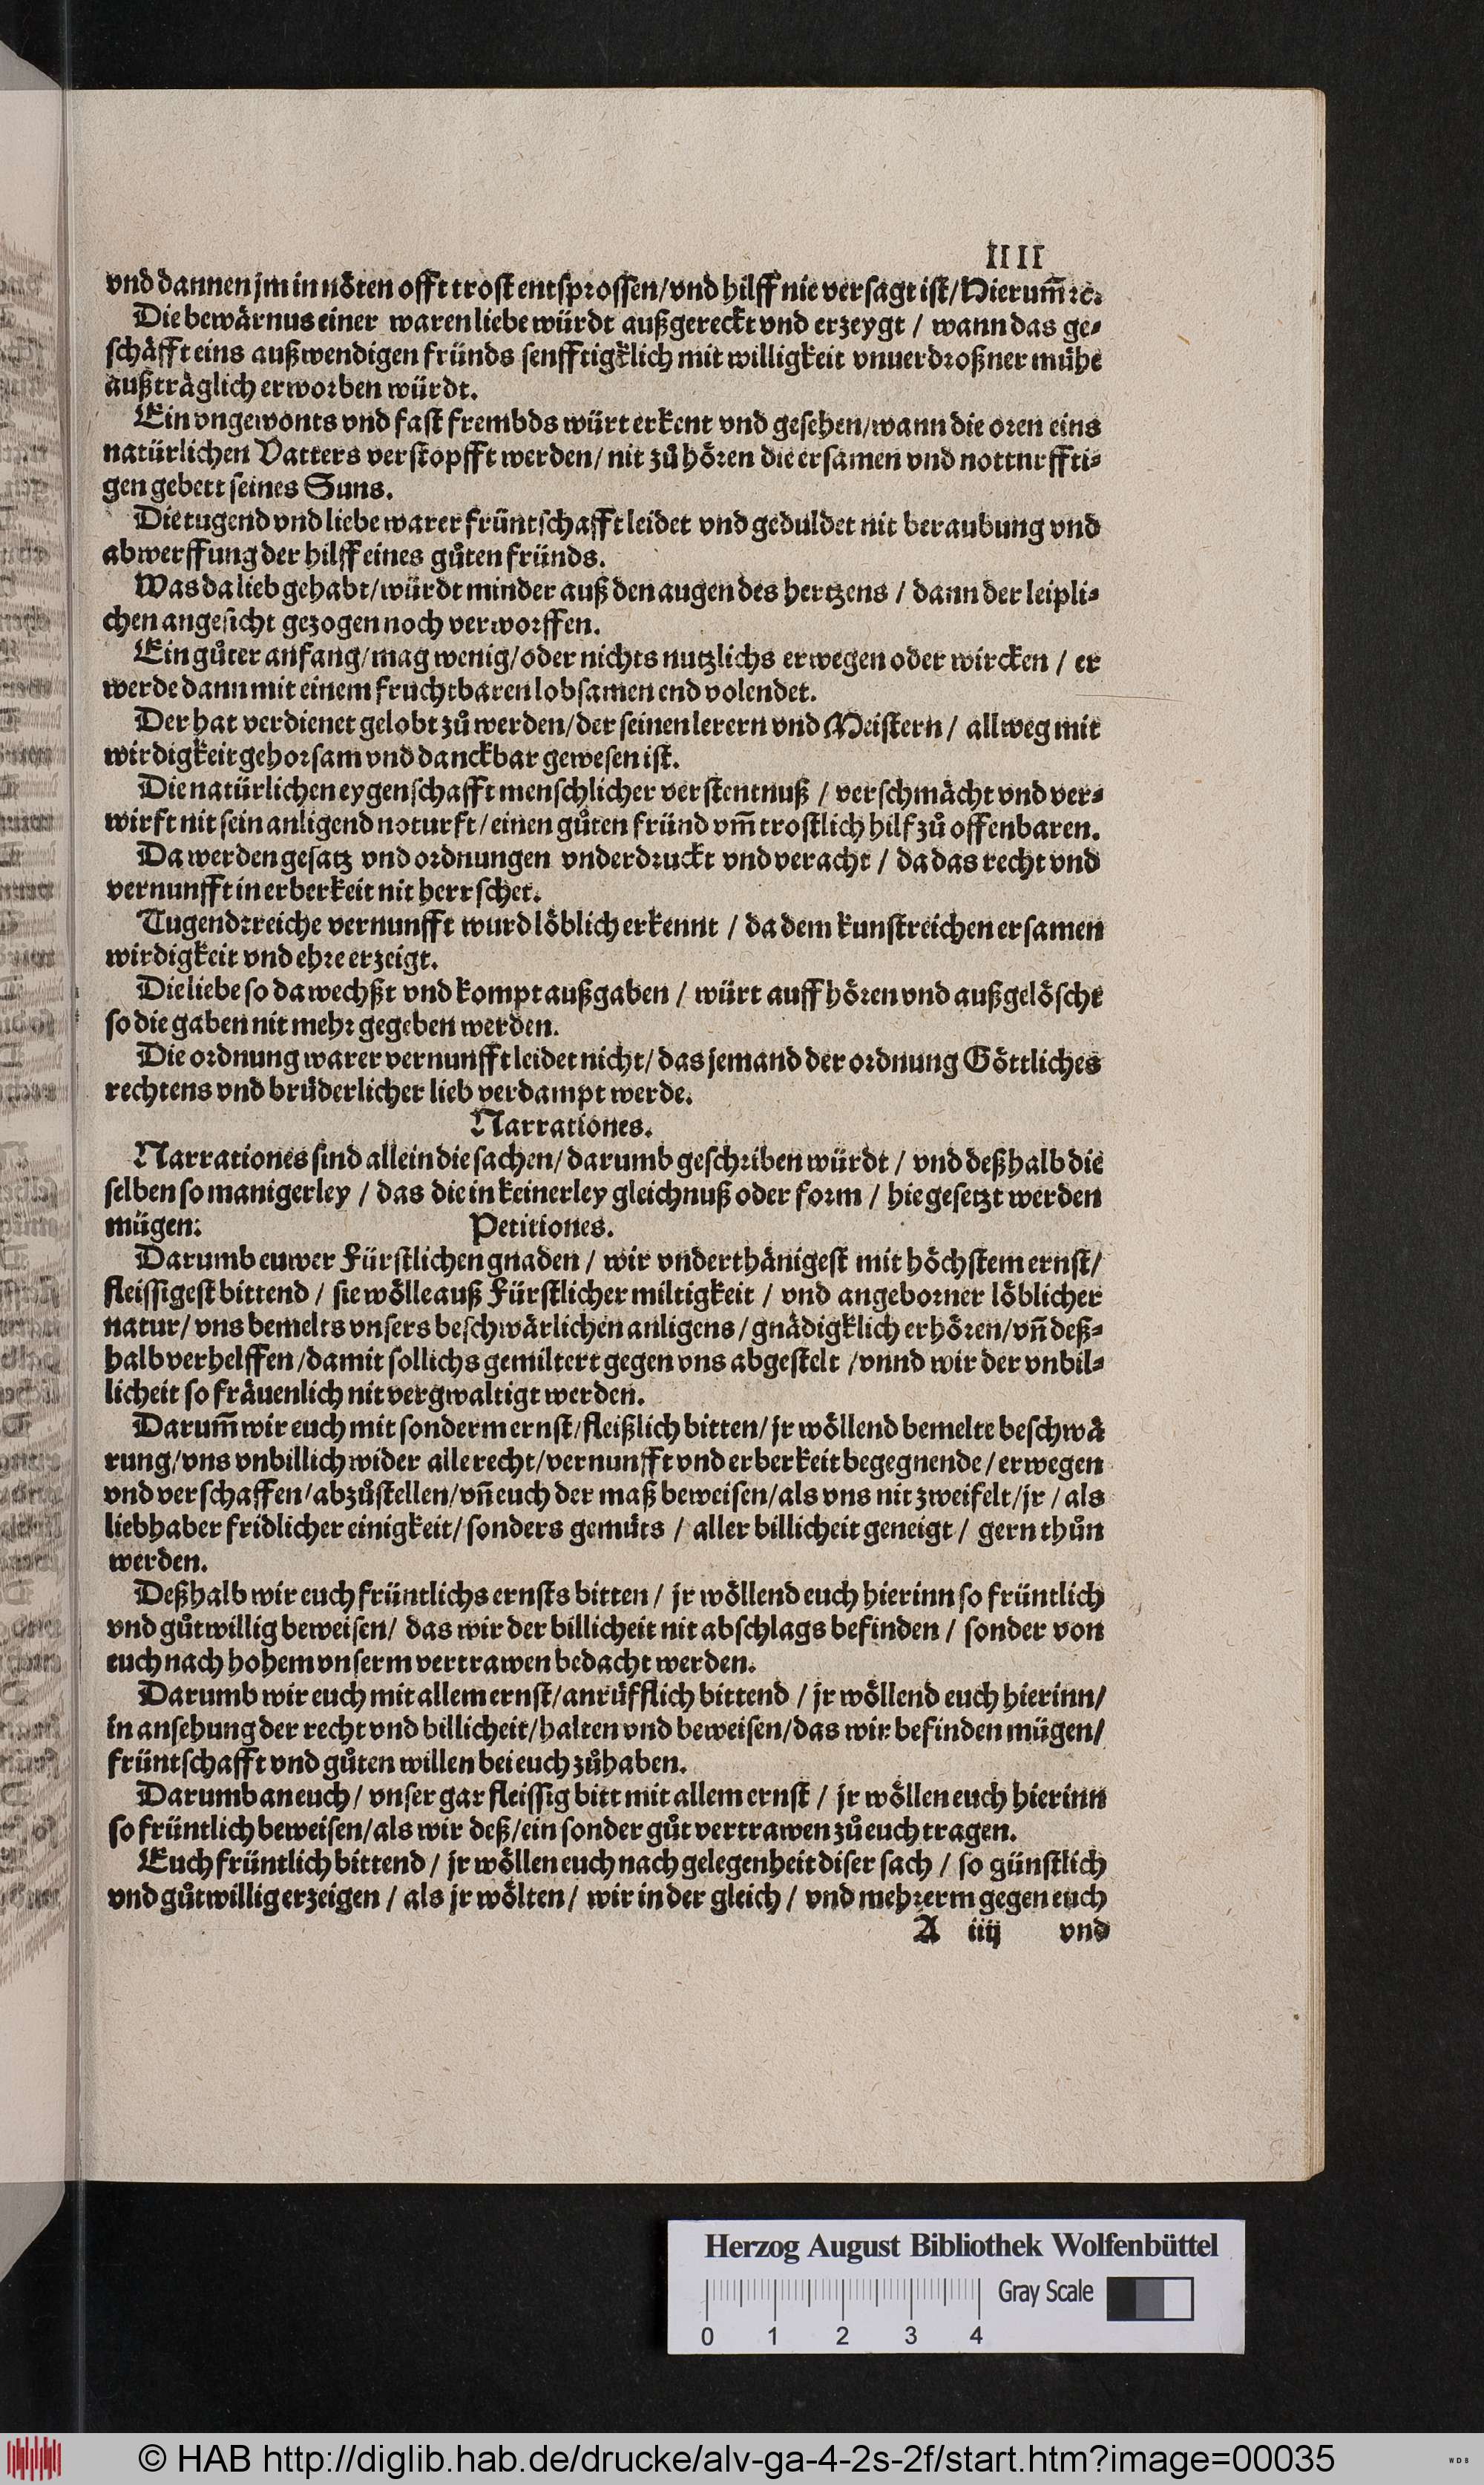 IIII
vnd dannen jm in nöten offt trost entsprossen/vnd hilff nie versagt ist/Hierum̄ ꝛc.
Die bewärnus einer waren liebe würdt außgereckt vnd erzeygt / wann das ge-
schäfft eins außwendigen fründs senfftigklich mit willigkeit vnuerdroßner mühe
außträglich erworben würdt.
Ein vngewonts vnd fast frembds würt erkent vnd gesehen/wann die oren eins
natürlichen Vatters verstopfft werden/ nit zů hören die ersamen vnd notturffti-
gen gebett seines Suns.
Die tugend vnd liebe warer früntschafft leidet vnd geduldet nit beraubung vnd
abwerffung der hilff eines gůten fründs.
Was da lieb gehabt/würdt minder auß den augen des hertzens / dann der leipli-
chen angesicht gezogen noch verworffen.
Ein gůter anfang/mag wenig/oder nichts nutzlichs erwegen oder wircken / er
werde dann mit einem fruchtbaren lobsamen end volendet.
Der hat verdienet gelobt zů werden/der seinen lerern vnd Meistern / allweg mit
wirdigkeit gehorsam vnd danckbar gewesen ist.
Die natürlichen eygenschafft menschlicher verstentnuß / verschmächt vnd ver-
wirft nit sein anligend noturft/einen gůten fründ vm̄ trostlich hilf zů offenbaren.
Da werden gesatz vnd ordnungen vnderdruckt vnd veracht / da das recht vnd
vernunfft in erberkeit nit herrschet.
Tugendtreiche vernunfft wurd löblich erkennt / da dem kunstreichen ersamen
wirdigkeit vnd ehre erzeigt.
Die liebe so da wechßt vnd kompt auß gaben / würt auff hören vnd außgelöscht
so die gaben nit mehr gegeben werden.
Die ordnung warer vernunfft leidet nicht/ das jemand der ordnung Göttliches
rechtens vnd brüderlicher lieb verdampt werde.
Narrationes.
Narrationes sind allein die sachen/ darumb geschriben würdt / vnd deßhalb die
selben so manigerley / das die in keinerley gleichnuß oder form / hie gesetzt werden
mügen: Petitiones.
Darumb euwer Fürstlichen gnaden / wir vnderthänigest mit höchstem ernst/
fleissigest bittend / sie wölle auß Fürstlicher miltigkeit / vnd angeborner löblicher
natur/ vns bemelts vnsers beschwärlichen anligens/gnädigklich erhören/vn̄ deß-
halb verhelffen/damit sollichs gemiltert gegen vns abgestelt /vnnd wir der vnbil-
licheit so fräuenlich nit vergwaltigt werden.
Darum̄ wir euch mit sonderm ernst/fleißlich bitten/ jr wöllend bemelte beschwä
rung/vns vnbillich wider alle recht/vernunfft vnd erberkeit begegnende/erwegen
vnd verschaffen/abzůstellen/vn̄ euch der maß beweisen/als vns nit zweifelt/jr / als
liebhaber fridlicher einigkeit/sonders gemüts / aller billicheit geneigt / gern thůn
werden.
Deßhalb wir euch früntlichs ernsts bitten / jr wöllend euch hierinn so früntlich
vnd gůtwillig beweisen/ das wir der billicheit nit abschlags befinden / sonder von
euch nach hohem vnserm vertrawen bedacht werden.
Darumb wir euch mit allem ernst/anrüfflich bittend / jr wöllend euch hierinn/
in ansehung der recht vnd billicheit/halten vnd beweisen/das wir befinden mügen/
früntschafft vnd gůten willen bei euch zů haben.
Darumb an euch/ vnser gar fleissig bitt mit allem ernst / jr wöllen euch hierinn
so früntlich beweisen/als wir deß/ein sonder gůt vertrawen zů euch tragen.
Euch früntlich bittend / jr wöllen euch nach gelegenheit diser sach / so günstlich
vnd gůtwillig erzeigen / als jr wölten/ wir in der gleich / vnd mehrerm gegen euch
A iiij vnd
Herzog August Bibliothek Wolfenbüttel
Gray Scale
0 1 2 3 4
© HAB http://diglib.hab.de/drucke/alv-ga-4-2s-2f/start.htm?image=00035
WDB